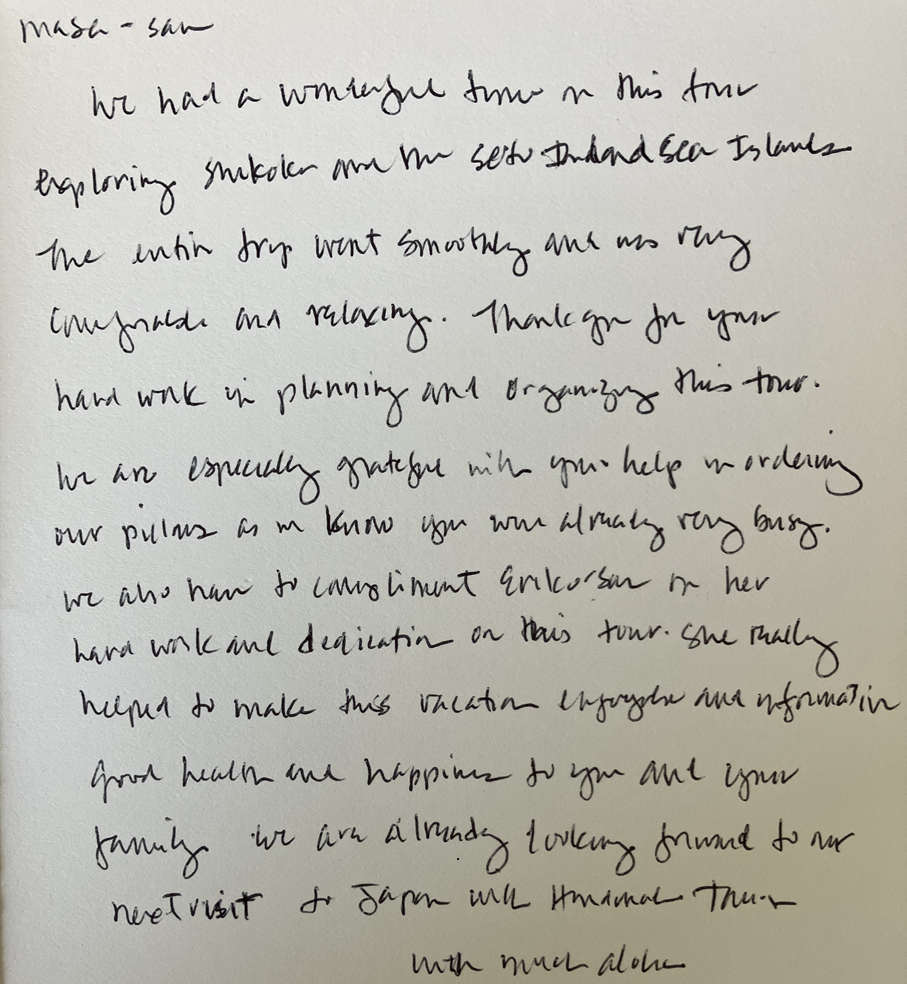 Masa-san
We had a wonderful time on this tour
exploring Shikoku and the Seto Inland Sea Islands
The entire trip went smoothly and was very
comfortable and relaxing. Thank you for your
hard work in planning and organizing this tour.
We are especially grateful with your help in ordering
our pillows as we know you were already very busy.
We also have to compliment Eriko-san on her
hard work and dedication on this tour. She really
helped to make this vacation enjoyable and informative
Good health and happiness to you and your
family. We are already looking forward to our
next visit to Japan with
with much aloha